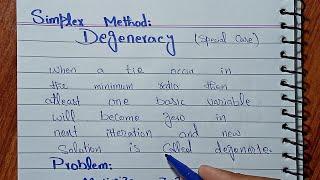 Simplex Method:
Degeneracy (Special Case)
when a tie occur in
the minimum ratio then
atleast one basic variable
will become zero in
next iteration and new
Solution is called degenerate.
Problem: